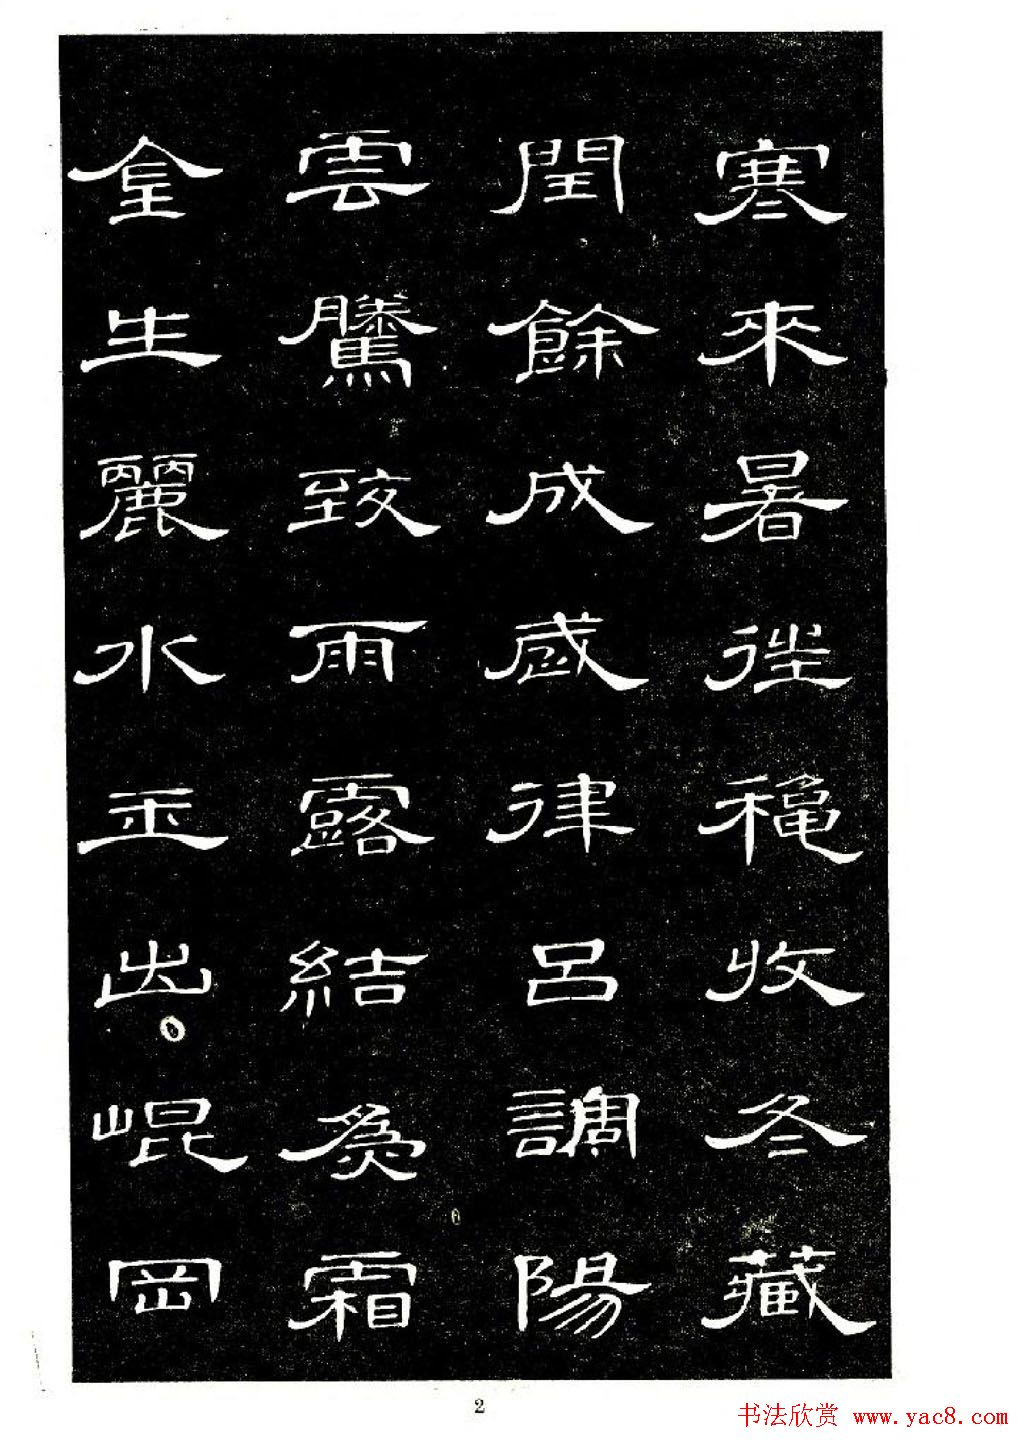 寒來暑往穐收冬藏
閏餘成歲律呂調陽
雲騰致雨露結為霜
金生麗水玉出崐岡
2
书法欣赏 www.yac8.com